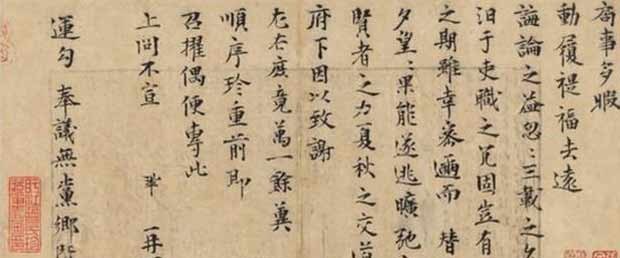 局事多暇
動履禔福去遠
誨論之益忽〻三載之久
汩于吏職之冗固豈有
之期雖幸密邇而替
夕望〻果能遂逃曠弛之
賢者之力夏秋之交道
府下因以致謝
左右庶竟萬一餘冀
順序珍重前即
召擢偶便專此
上問不宣 鞏 再
運勾 奉議無黨鄉賢